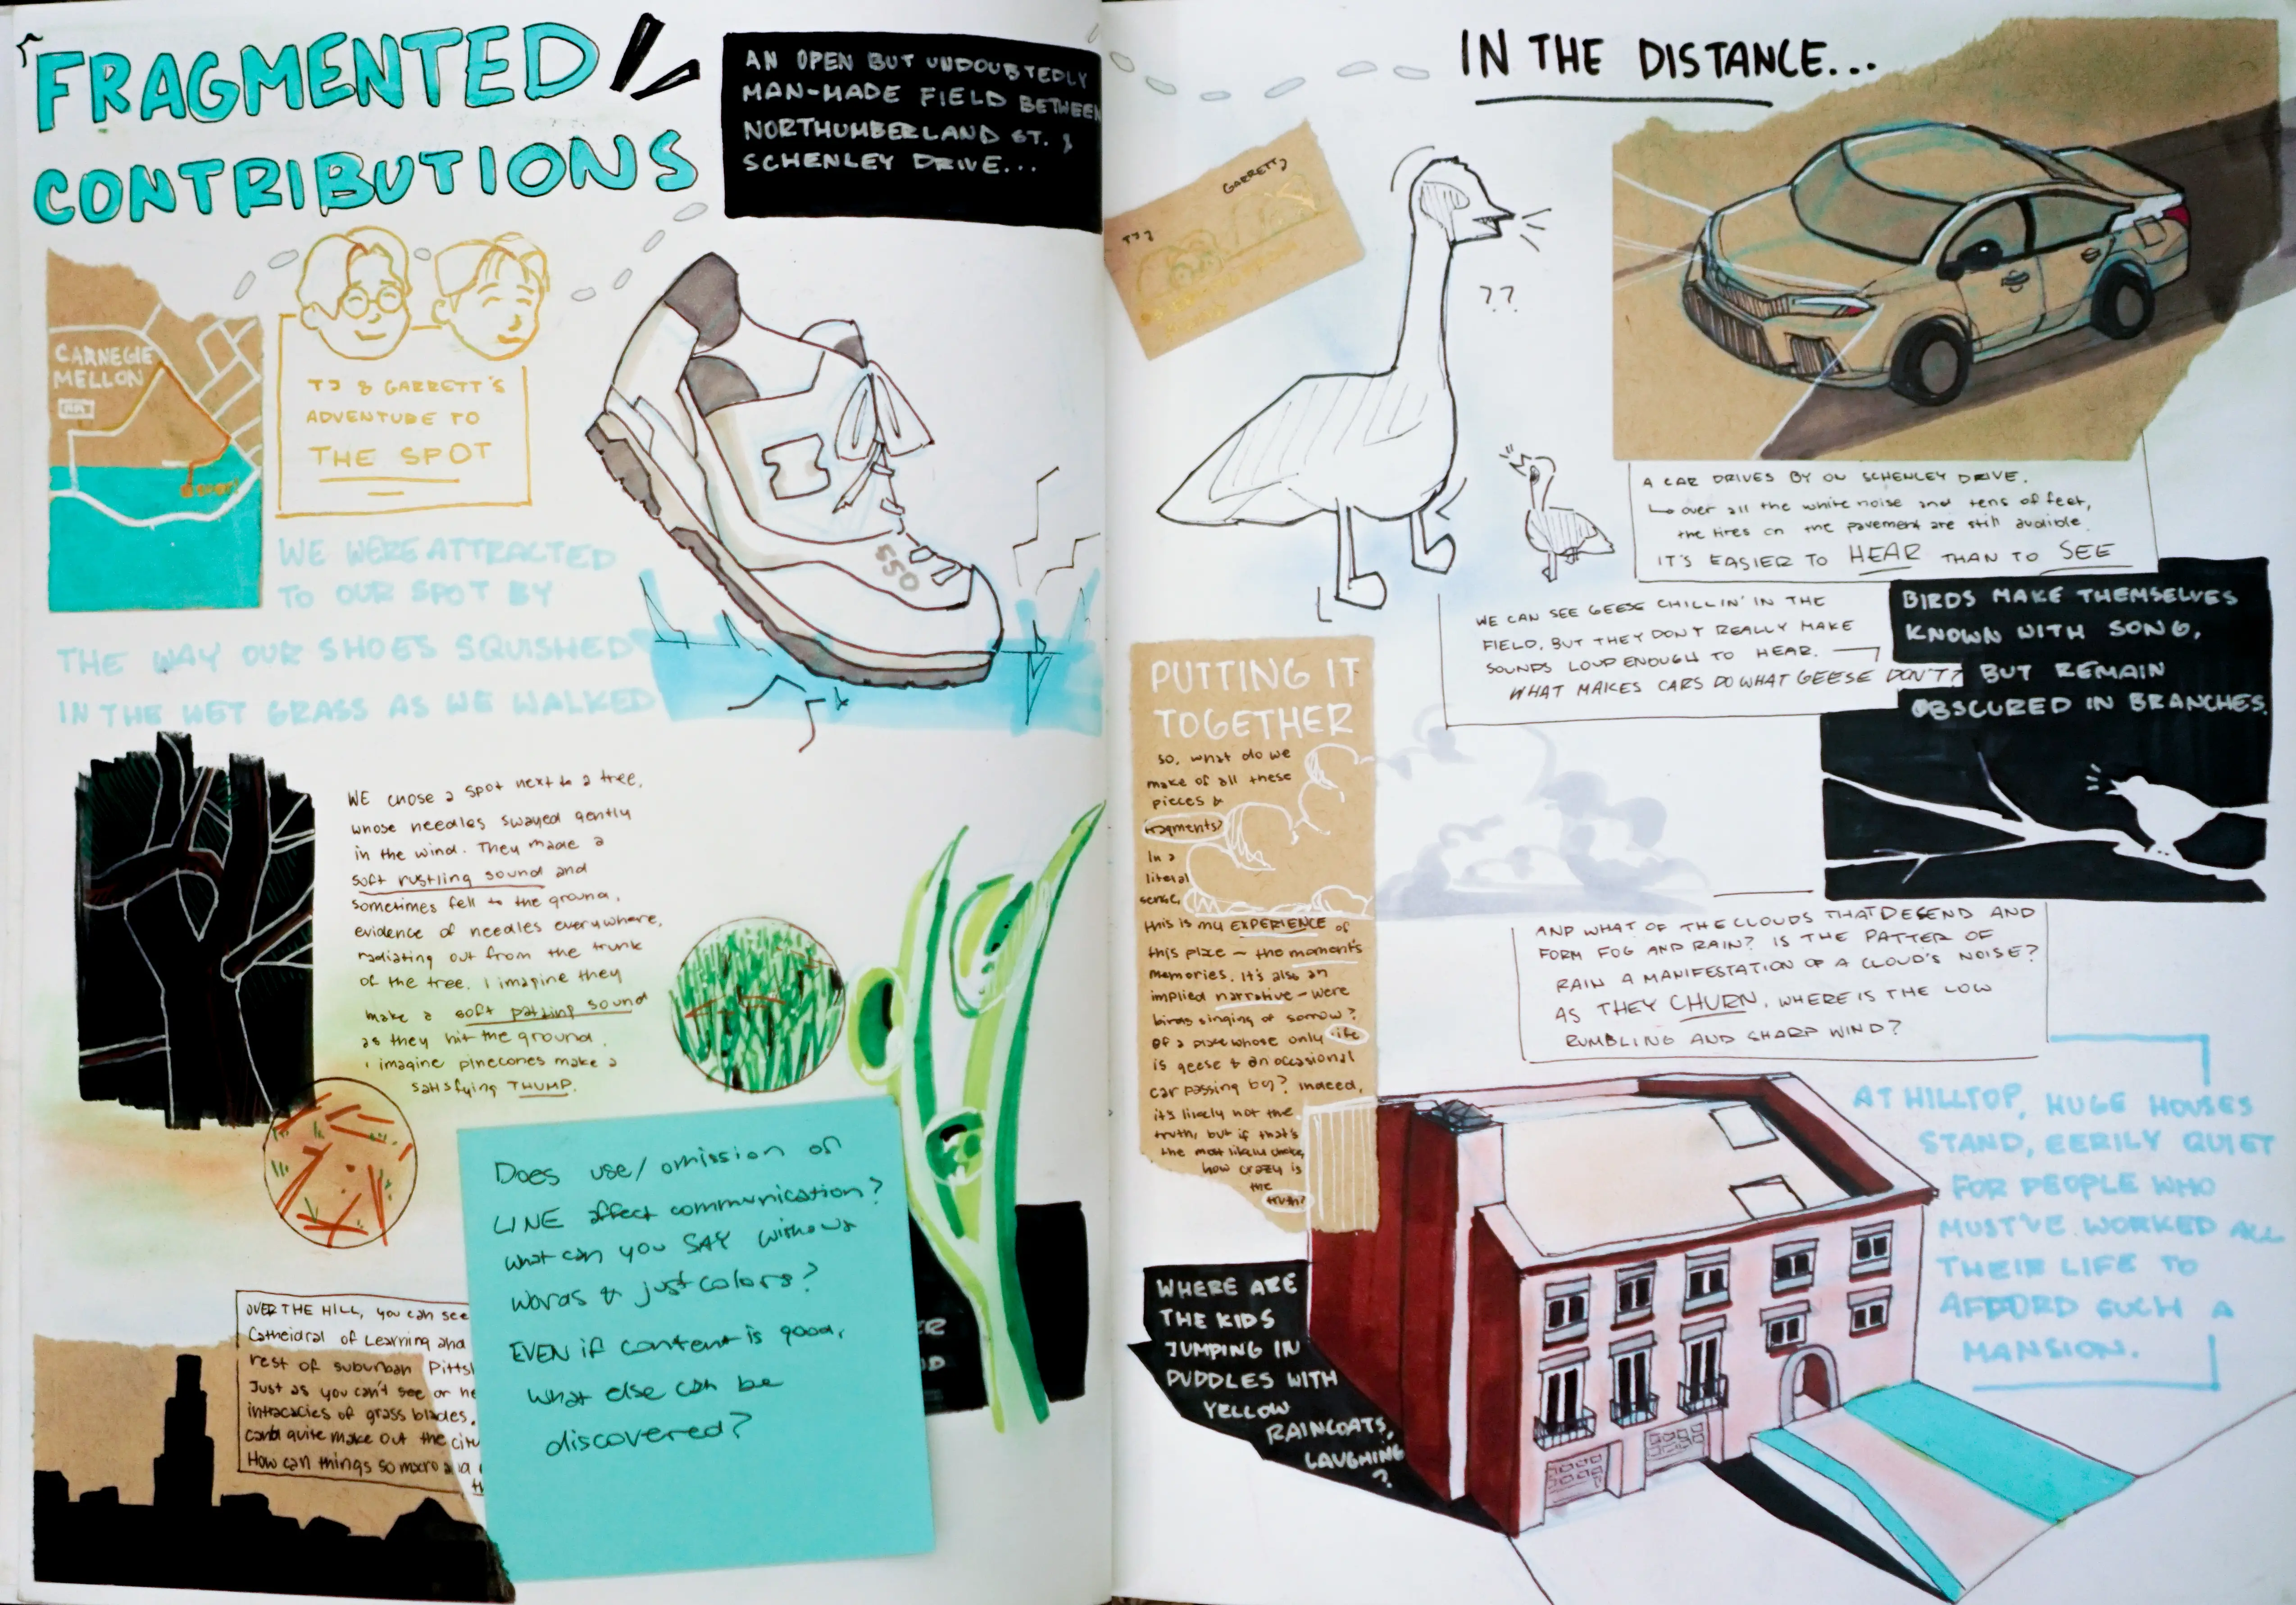 FRAGMENTED
CONTRIBUTIONS
AN OPEN BUT UNDOUBTEDLY
MAN-MADE FIELD BETWEEN
NORTHUMBERLAND ST. &
SCHENLEY DRIVE...
CARNEGIE
MELLON
SPOT!
TJ & GARRETT'S
ADVENTURE TO
THE SPOT
550
WE WERE ATTRACTED
TO OUR SPOT BY
THE WAY OUR SHOES SQUISHED
IN THE WET GRASS AS WE WALKED
WE chose a spot next to a tree,
whose needles swayed gently
in the wind. They made a
soft rustling sound and
sometimes fell to the ground,
evidence of needles everywhere,
radiating out from the trunk
of the tree. I imagine they
make a soft patting sound
as they hit the ground.
I imagine pinecones make a
satisfying THUMP.
OVER THE HILL, you can see
Catheidral of Learning and
rest of suburban
Just as you can't see or
intracacies of grass blades,
quite make out the
How can things so macro
Does use/omission of
LINE affect communication?
What can you SAY without
words & just colors?
EVEN if content is good,
what else can be
discovered?
IN THE DISTANCE...
TJ
GARRETT
??
A CAR DRIVES BY ON SCHENLEY DRIVE.
↳ over all the white noise and tens of feet,
the tires on the pavement are still audible.
IT'S EASIER TO HEAR THAN TO SEE
WE CAN SEE GEESE CHILLIN' IN THE
FIELD, BUT THEY DON'T REALLY MAKE
SOUNDS LOUD ENOUGH TO HEAR.
WHAT MAKES CARS DO WHAT GEESE DON'T?
BIRDS MAKE THEMSELVES
KNOWN WITH SONG,
BUT REMAIN
OBSCURED IN BRANCHES.
PUTTING IT
TOGETHER
So, what do we
make of all these
pieces &
fragments?
In a
literal
sense,
this is my EXPERIENCE of
this place – the moments
memories. It's also an
implied narrative – were
birds singing of sorrow?
Of a place whose only life
is geese & an occasional
car passing by? Indeed,
it's likely not the
truth, but if that's
the most likely choice,
how crazy is
the
truth?
AND WHAT OF THE CLOUDS THAT DESEND AND
FORM FOG AND RAIN? IS THE PATTER OF
RAIN A MANIFESTATION OF A CLOUD'S NOISE?
AS THEY CHURN, WHERE IS THE LOW
RUMBLING AND SHARP WIND?
AT HILLTOP, HUGE HOUSES
STAND, EERILY QUIET
FOR PEOPLE WHO
MUST'VE WORKED ALL
THEIR LIFE TO
AFFORD SUCH A
MANSION.
WHERE ARE
THE KIDS
JUMPING IN
PUDDLES WITH
YELLOW
RAINCOATS,
LAUGHING
?